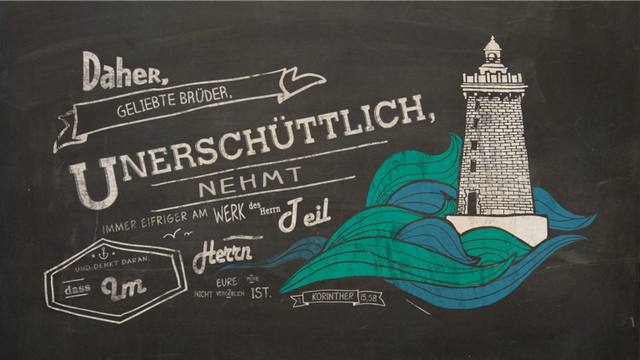 Daher,
GELIEBTE BRÜDER,
UNERSCHÜTTLICH,
NEHMT
IMMER EIFRIGER AM WERK des Herrn Teil
UND DENKT DARAN,
dass Im Herrn
EURE MÜHE
NICHT VERGEBLICH IST.
KORINTHER 15,58